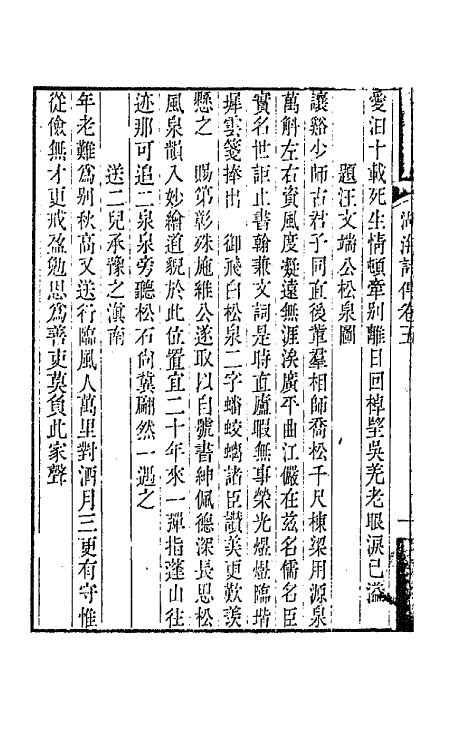 愛泪十載死生情頓牽别離日回棹望吳羌老眼淚已溢
題汪文端公松泉圖
讓谿少師古君子同直後輩羣相師喬松千尺棟梁用源泉
萬斛左右資風度凝遠無涯涘廣平曲江儼在兹名儒名臣
實名世詎止書翰兼文詞是時直廬暇無事榮光燭燭臨堦
墀雲箋捧出　御飛白松泉二字蟠蛟螭諸臣讚美更歎羨
懸之　賜第彰殊施維公遂取以自號書紳佩德深長思松
風泉韻入妙繪道貌於此位置宜二十年來一彈指蓬山往
迹那可追二泉泉旁聽松石向冀翩然一遇之
送二兒承豫之滇南
年老難為别秋高又送行臨風人萬里對酒月三更有守惟
從儉無才更戒盈勉思為善吏莫負此家聲
湖海詩傳卷五
一